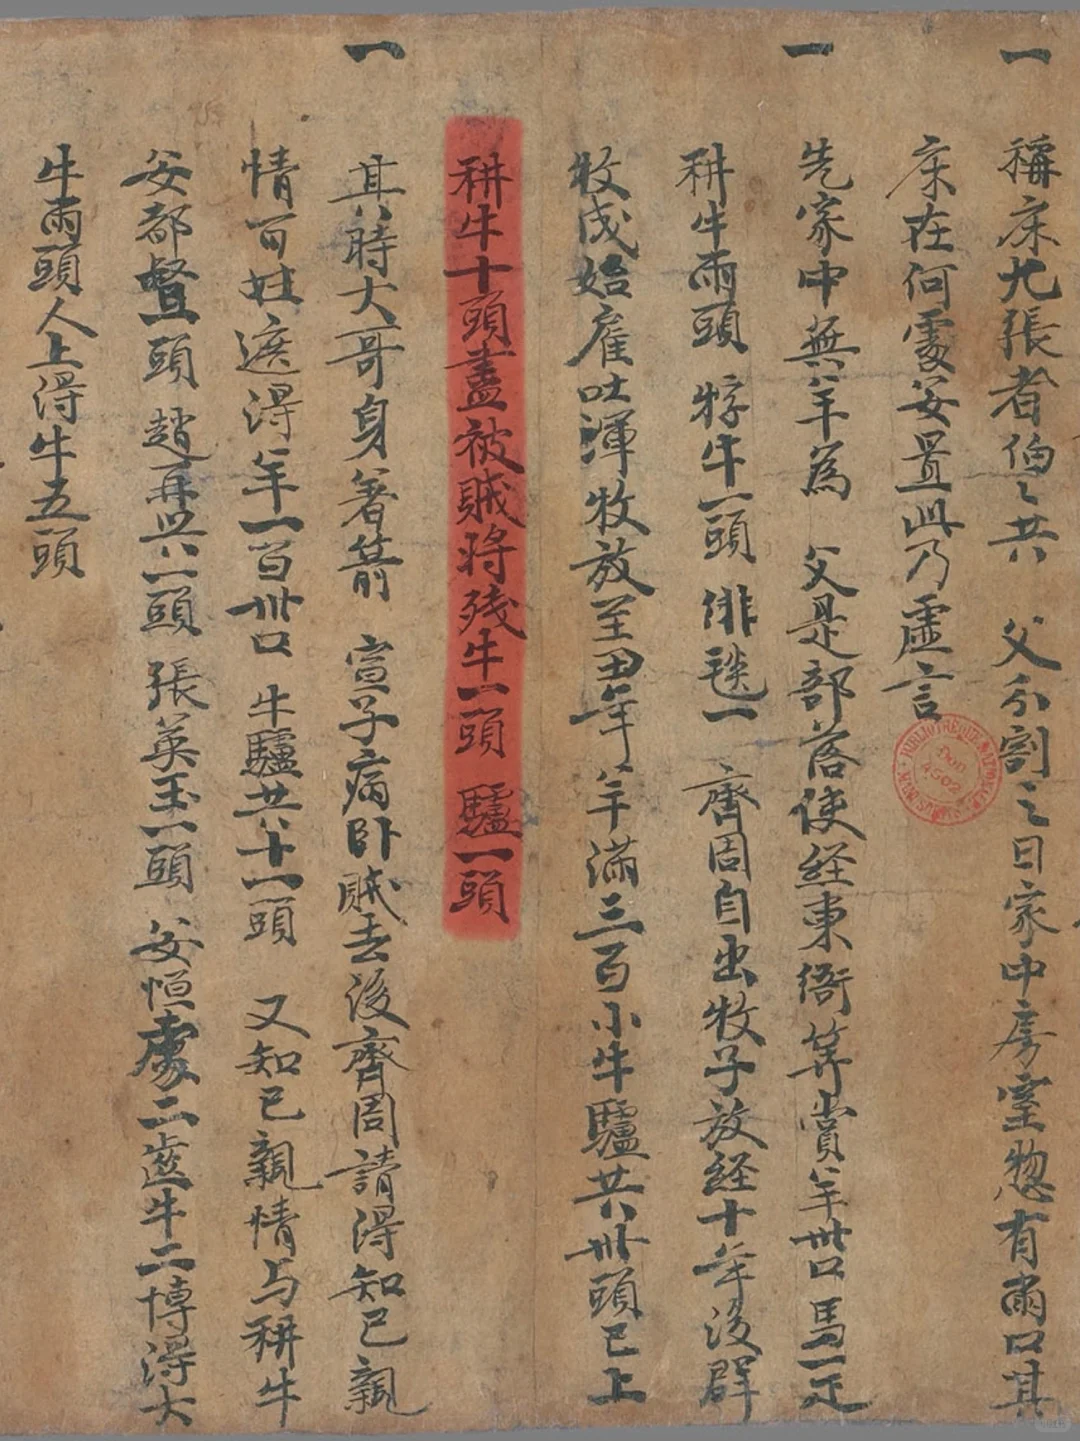 一
稱床九張者伯〻共 父分割之日家中房室惣有兩口其
床在何處安置此乃虛言
一
先家中無羊為 父是部落使経東衙筭賞羊卅口馬一疋
耕牛兩頭 牸牛一頭 緋毯一 齊周自出牧子放経十年後群
牧成始雇吐渾牧放至丑年羊滿三百小牛驢共卅頭已上
耕牛十頭盡被賊將殘牛一頭 驢一頭
一
其時大哥身著箭 宣子病臥賊去後齊周請得知已親
情百姓遮得羊一百卅口 牛驢共十一頭 又知已親情与耕牛
安都督一頭 趙再興一頭 張英玉一頭 安恒處二齒牛二博得大
牛兩頭人上得牛五頭